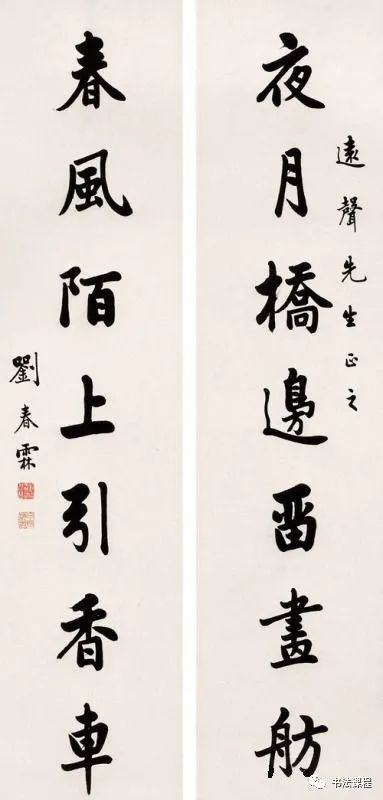 遠聲先生正之
夜月橋邊畱畫舫
春風陌上引香車
劉春霖
书法课程